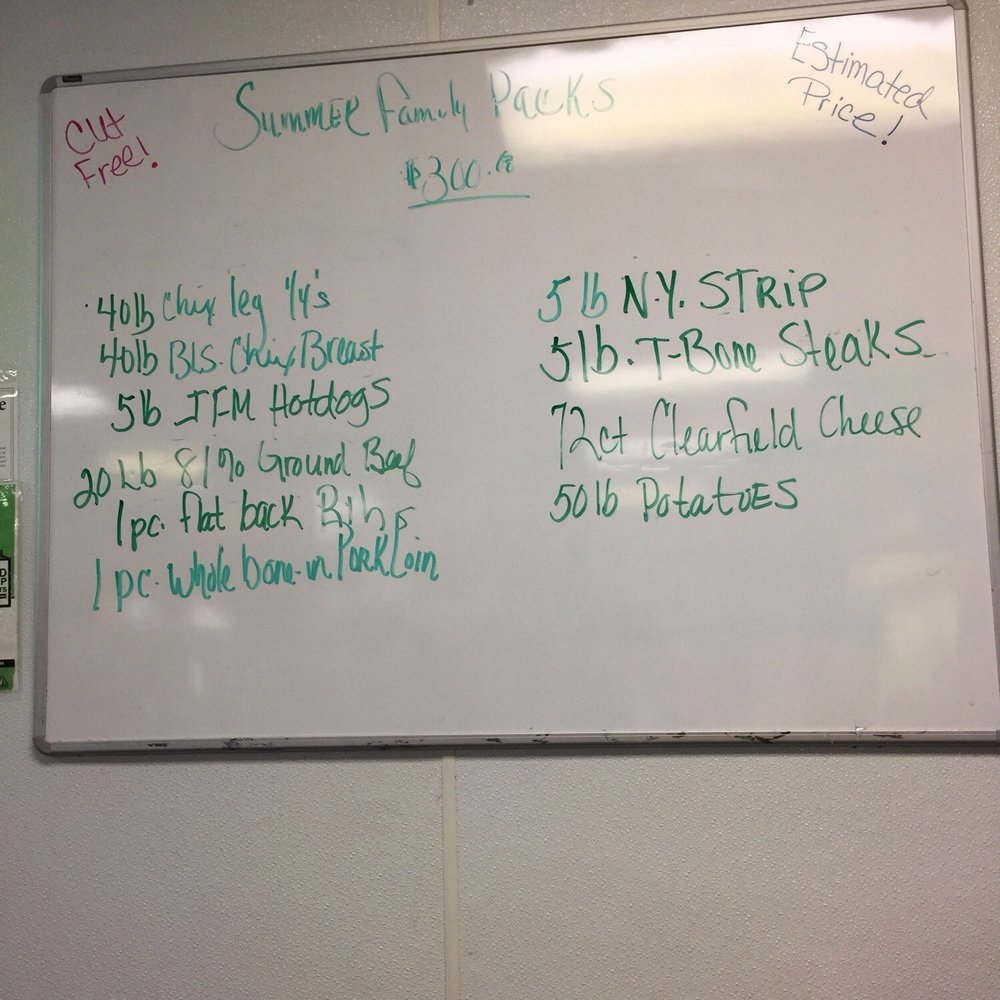 Cut
Free!
Summer Family Packs
$300.00
Estimated
Price!
40lb Chix leg 1/4's
40lb B/S. Chix Breast
5lb JFM Hotdogs
20 Lb 81% Ground Beef
1pc. flat back Ribs
1pc. whole bone-in Pork Loin
5lb N.Y. STRiP
5lb. T-Bone Steaks
72ct Clearfield Cheese
50lb Potatoes